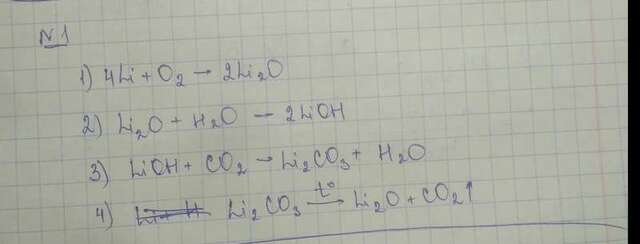 №1
1) 4Li + O₂ → 2Li₂O
2) Li₂O + H₂O — 2LiOH
3) LiOH + CO₂ → Li₂CO₃ + H₂O
4) Li₂CO₃ →t° Li₂O + CO₂↑